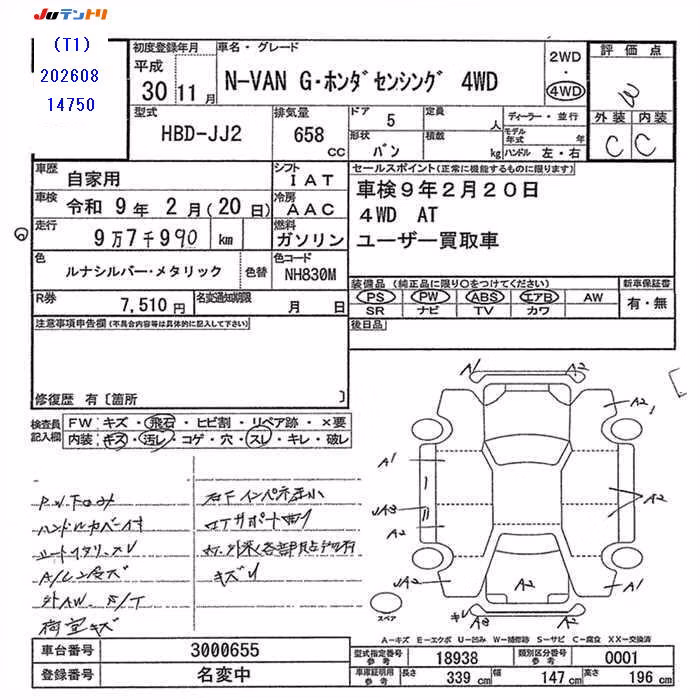 JUテントリ
(T1)
202608
14750
初度登録年月
平成
30 11月
車名・グレード
N-VAN G・ホンダセンシング 4WD
2WD
・
4WD
評価点
W
外装 内装
C C
型式
HBD-JJ2
排気量
658
CC
ドア 5
定員 人
形状 バン
積載 kg
ディーラー・並行
モデル年式 年
ハンドル 左・右
車歴 自家用
車検 令和 9年 2月(20日)
走行 9万7千990 km
色 ルナシルバー・メタリック 色替
シフト IAT
冷房 AAC
燃料 ガソリン
色コード NH830M
セールスポイント(正常に機能するものに限ります)
車検9年2月20日
4WD AT
ユーザー買取車
R券 7,510円
名変通知期限 月 日
装備品(純正品に限り○をつけてください)
PS PW ABS エアB AW
SR ナビ TV カワ
新車保証書
有・無
注意事項申告欄(不具合内容等は具体的に記入して下さい)
後日品
修復歴 有〔箇所 〕
検査員記入欄
FW キズ・飛石・ヒビ割・リペア跡・×要
内装 キズ・汚レ・コゲ・穴・スレ・キレ・破レ
ハンドルカバー付
荷室キズ
キズU
A1 A2
A2
A1
A2
A2
A2
A2
A1
キU
A3
A2
スペア
A-キズ E-エクボ U-凹み W-補修跡 S-サビ C-腐食 XX-交換済
車台番号 3000655
登録番号 名変中
型式指定番号 参考 18938
類別区分番号 参考 0001
車庫証明用 参考
長さ 339 cm
幅 147 cm
高さ 196 cm